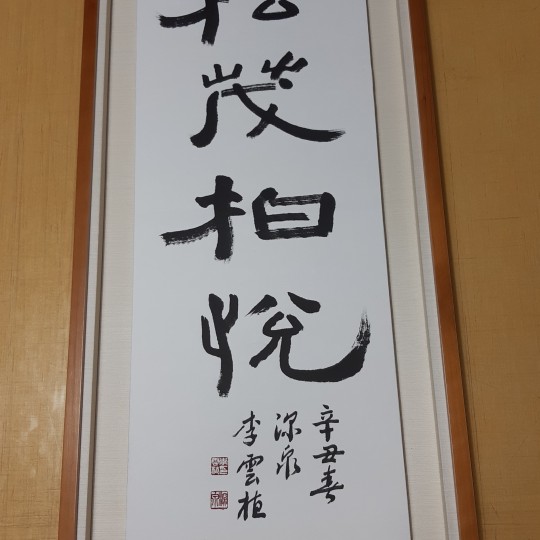 松茂柏悅
辛丑春
深泉
李雲植